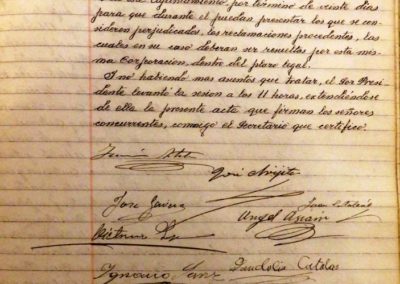 Ayuntamiento, por término de veinte días
para que durante él puedan presentar los que se con-
sideren perjudicados, las reclamaciones procedentes, las
cuales en su caso deberan ser resueltas por esta mis-
ma Corporacion, dentro del plazo legal.
Y no habiendo mas asuntos que tratar, el Sor Presi-
dente levantó la sesion a las 11 horas, extendiéndose
de ella la presente acta que firman los señores
concurrentes, conmigo el Secretario que certifico.
José
José
Juan
Angel
Ignacio Sanz